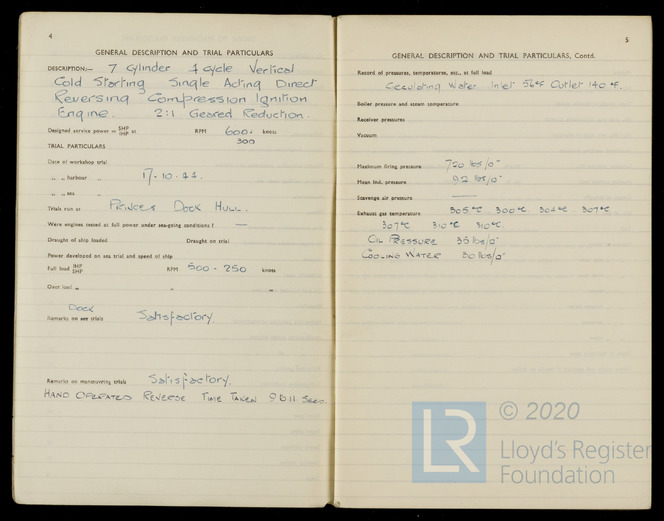 4
GENERAL DESCRIPTION AND TRIAL PARTICULARS
DESCRIPTION:— 7 Cylinder 4 cycle Vertical
Cold Starting Single Acting Direct
Reversing Compression Ignition
Engine. 2:1 Geared Reduction.
Designed service power = SHP IHP at RPM 600. knots
300
TRIAL PARTICULARS
Date of workshop trial
„ „ harbour „ 17.10.44.
„ „ sea „
Trials run at PRINCES DOCK HULL.
Were engines tested at full power under sea-going conditions? —
Draught of ship loaded Draught on trial
Power developed on sea trial and speed of ship
Full load IHP SHP RPM 500 - 250 knots
Over load „ „ „
DOCK
Remarks on sea trials Satisfactory.
Remarks on manœuvring trials Satisfactory.
HAND OPERATED REVERSE TIME TAKEN 9 to 11 Secs.
5
GENERAL DESCRIPTION AND TRIAL PARTICULARS, Contd.
Record of pressures, temperatures, etc., at full load
Circulating Water Inlet 56°F Outlet 140°F.
Boiler pressure and steam temperature
Receiver pressures
Vacuum
Maximum firing pressure 720 lbs/□"
Mean ind. pressure 92 lbs/□"
Scavenge air pressure —
Exhaust gas temperature 305°C 300°C 304°C 307°C
307°C 310°C 310°C
OIL PRESSURE 35 lbs/□"
COOLING WATER 30 lbs/□"
LR
© 2020
Lloyd's Register
Foundation